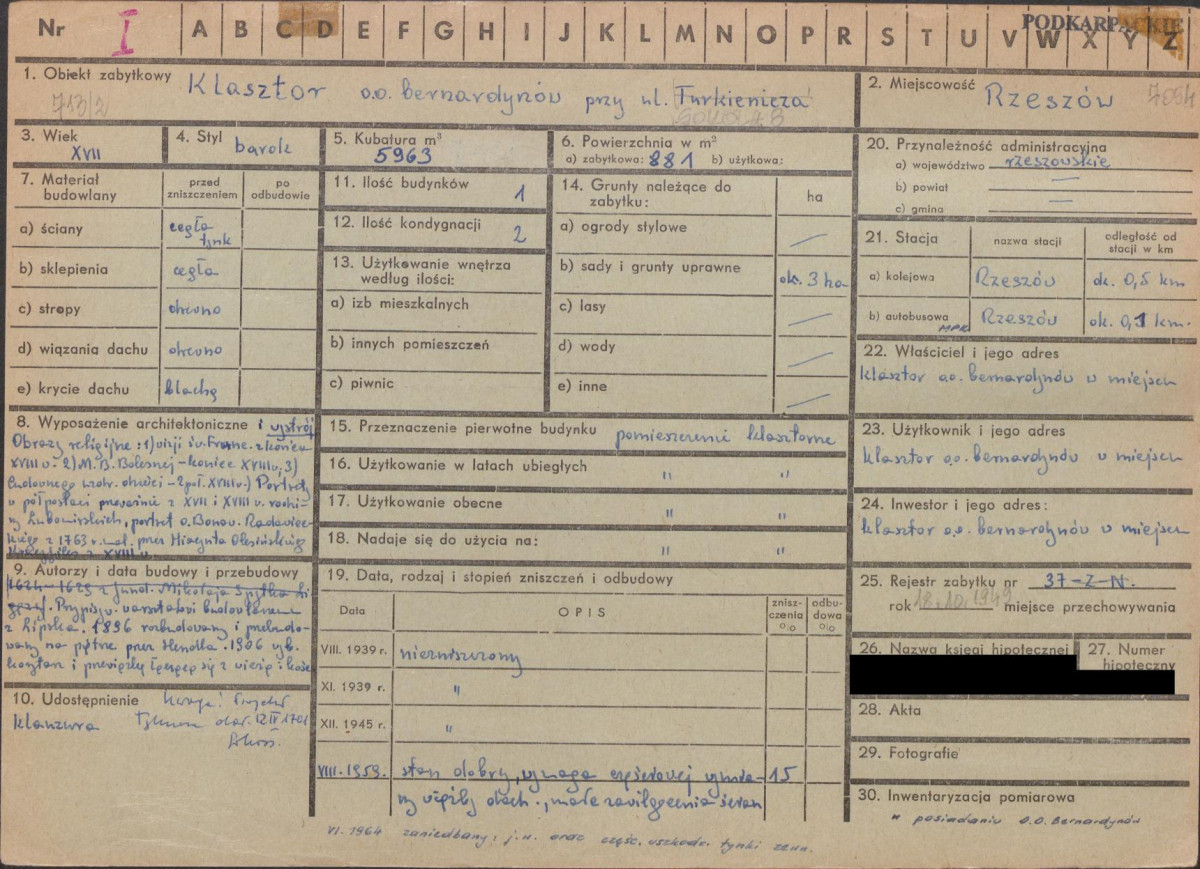 PODKARPACKIE
Nr I A B C D E F G H I J K L M N O P R S T U V W X Y Z
1. Obiekt zabytkowy Klasztor o.o. bernardynów przy ul. Turkienicza
713/2
2. Miejscowość Rzeszów
3. Wiek XVII
4. Styl barok
5. Kubatura m³ 5963
6. Powierzchnia w m²
a) zabytkowa: 881 b) użytkowa:
7. Materiał budowlany
przed zniszczeniem
po odbudowie
a) ściany cegła tynk
b) sklepienia cegła
c) stropy drewno
d) wiązania dachu drewno
e) krycie dachu blachą
8. Wyposażenie architektoniczne i wystrój
Obrazy religijne: 1) wizji św. Franc. z końca
XVIII w. 2) M.B. Bolesnej – koniec XVIII w, 3)
Cudownego – 2 poł. XVIII w.) Portrety
w półpostaci przeważnie z XVII i XVIII w. rodzi-
ny Lubomirskich, portret o. Bonaw.
z 1763 r. mal. przez Hiacynta Olesińskiego
z XVIII w.
9. Autorzy i data budowy i przebudowy
1624–1629 z fund. Mikołaja Spytka Li-
gęzy. Przypis. warsztatowi budowlanemu
z Lipska. 1896 rozbudowany i przebudo-
wany na piętrze przez Hendla. 1906 wyb.
10. Udostępnienie
klauzura
11. Ilość budynków 1
12. Ilość kondygnacji 2
13. Użytkowanie wnętrza według ilości:
a) izb mieszkalnych
b) innych pomieszczeń
c) piwnic
14. Grunty należące do zabytku:
ha
a) ogrody stylowe —
b) sady i grunty uprawne ok. 3 ha
c) lasy —
d) wody —
e) inne —
15. Przeznaczenie pierwotne budynku pomieszczenie klasztorne
16. Użytkowanie w latach ubiegłych " "
17. Użytkowanie obecne " "
18. Nadaje się do użycia na: " "
19. Data, rodzaj i stopień zniszczeń i odbudowy
Data OPIS zniszczenia o/o odbudowa o/o
VIII. 1939 r. niezniszczony
XI. 1939 r. "
XII. 1945 r. "
VIII. 1959. stan dobry, wymaga częściowej wymia- 15
ny więźby dach., małe zawilgocenia ścian
VI. 1964 zaniedbany; j.w. oraz częśc. uszkodz. tynki zewn.
20. Przynależność administracyjna
a) województwo rzeszowskie
b) powiat —
c) gmina —
21. Stacja
nazwa stacji
odległość od stacji w km
a) kolejowa Rzeszów ok. 0,5 km
b) autobusowa MPK Rzeszów ok. 0,1 km.
22. Właściciel i jego adres
klasztor o.o. bernardynów w miejscu
23. Użytkownik i jego adres
klasztor o.o. bernardynów w miejscu
24. Inwestor i jego adres:
klasztor o.o. bernardynów w miejscu
25. Rejestr zabytku nr 37-Z-N.
rok 18.10.1949 miejsce przechowywania
26. Nazwa księgi hipotecznej
27. Numer hipoteczny
28. Akta
29. Fotografie
30. Inwentaryzacja pomiarowa
w posiadaniu O.O. Bernardynów